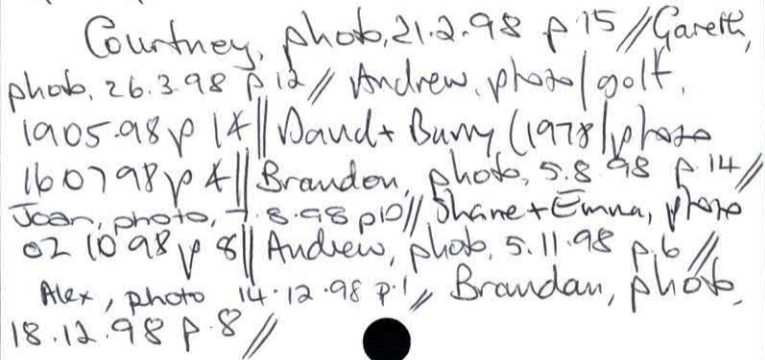 Courtney, photo, 21.2.98 p.15 // Gareth,
photo, 26.3.98 p.12 // Andrew, photo / golf,
190598 p 14 // David + Barry (1978) photo
160798 p 4 // Brandon, photo, 5.8.98 p.14 //
Joan, photo, 7.8.98 p10 // Shane + Emma, photo
02 10 98 p 8 // Andrew, photo, 5.11.98 p.6 //
Alex, photo 14.12.98 p.1 // Brandan, photo,
18.12.98 p.8 //